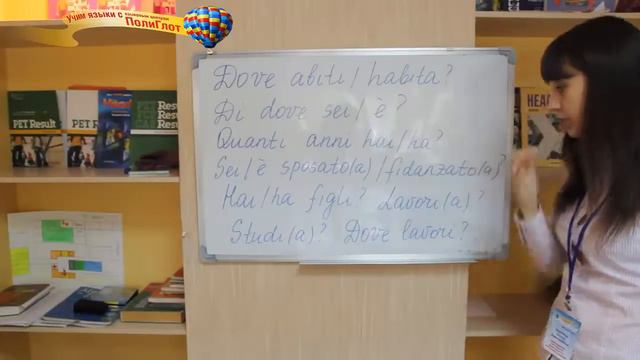 Учим языки с языковым центром
ПолиГлот
Dove abiti / habita?
Di dove sei / è?
Quanti anni hai / ha?
Sei / è sposato(a) / fidanzato(a)?
Hai / ha figli? Lavori(a)?
Studi(a)? Dove lavori?
PET Result
PET Result
PET
Result
Result
HEAD